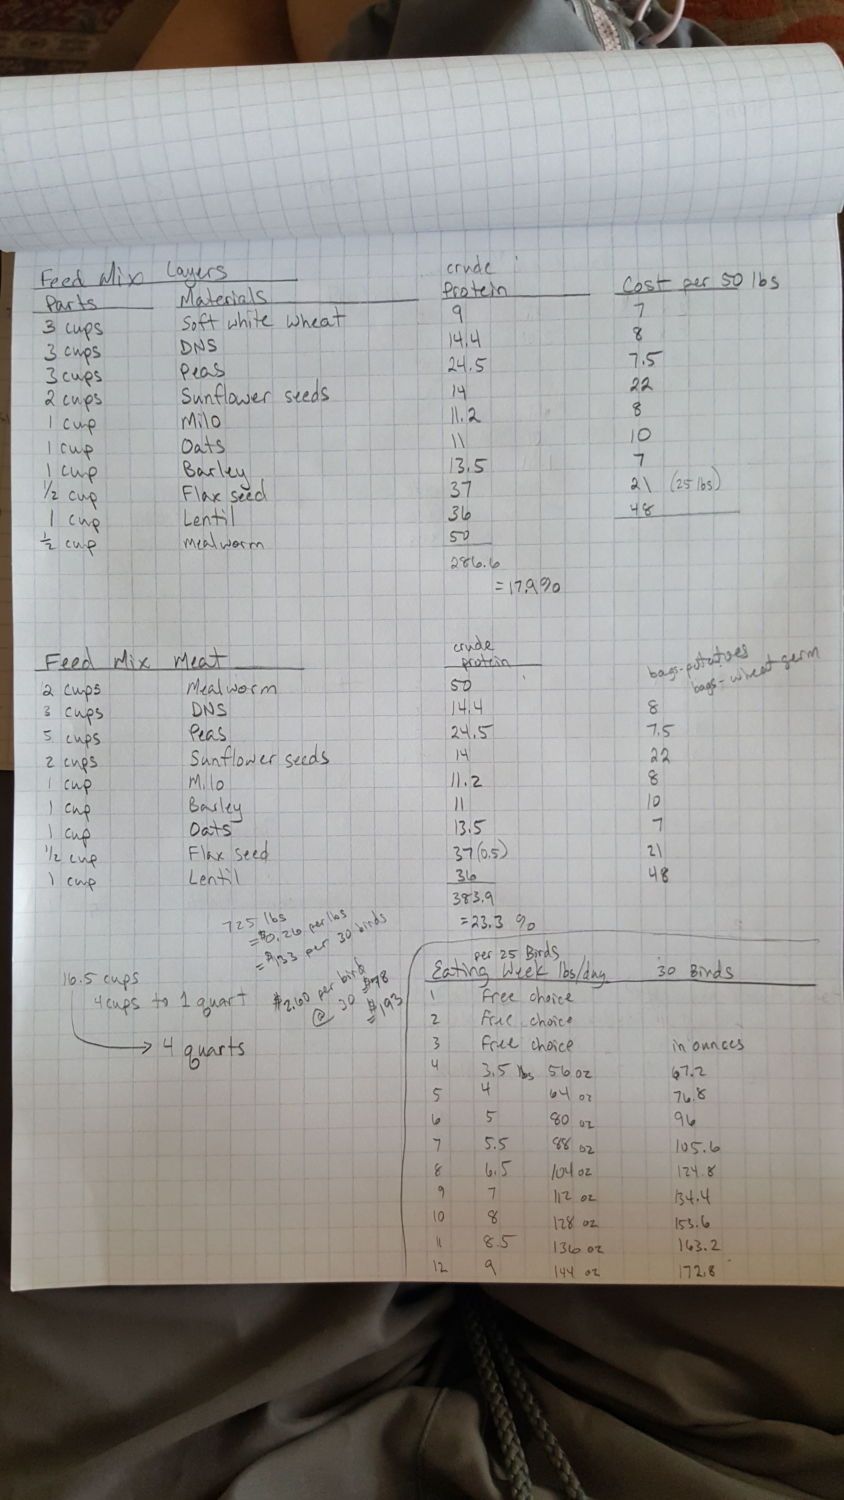 Feed Mix Layers crude
Parts Materials Protein Cost per 50 lbs
3 cups Soft white wheat 9 7
3 cups DNS 14.4 8
3 cups Peas 24.5 7.5
2 cups Sunflower seeds 14 22
1 cup Milo 11.2 8
1 cup Oats 11 10
1 cup Barley 13.5 7
1/2 cup Flax seed 37 21 (25 lbs)
1 cup Lentil 36 48
1/2 cup mealworm 50
286.6
= 17.9%
Feed Mix Meat crude protein
bags-potatoes
bags-wheat germ
2 cups Mealworm 50
3 cups DNS 14.4 8
5 cups Peas 24.5 7.5
2 cups Sunflower seeds 14 22
1 cup Milo 11.2 8
1 cup Barley 11 10
1 cup Oats 13.5 7
1/2 cup Flax Seed 37(0.5) 21
1 cup Lentil 36 48
383.9
= 23.3 %
725 lbs
= $0.26 per lbs
= $133 per 30 birds
16.5 cups
4 cups to 1 quart
4 quarts
$2.60 per bird
@ 30 $78
= $193
per 25 Birds
Eating Week lbs/day 30 Birds
1 Free choice
2 Free choice
3 Free choice in ounces
4 3.5 lbs 56 oz 67.2
5 4 64 oz 76.8
6 5 80 oz 96
7 5.5 88 oz 105.6
8 6.5 104 oz 124.8
9 7 112 oz 134.4
10 8 128 oz 153.6
11 8.5 136 oz 163.2
12 9 144 oz 172.8